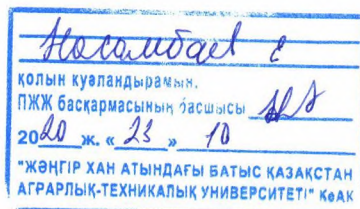 Насамбаев Е
қолын куәландырамын.
ПЖЖ басқармасының басшысы
2020 ж. « 23 » 10
"ЖӘҢГІР ХАН АТЫНДАҒЫ БАТЫС ҚАЗАҚСТАН
АГРАРЛЫҚ-ТЕХНИКАЛЫҚ УНИВЕРСИТЕТІ" КеАҚ